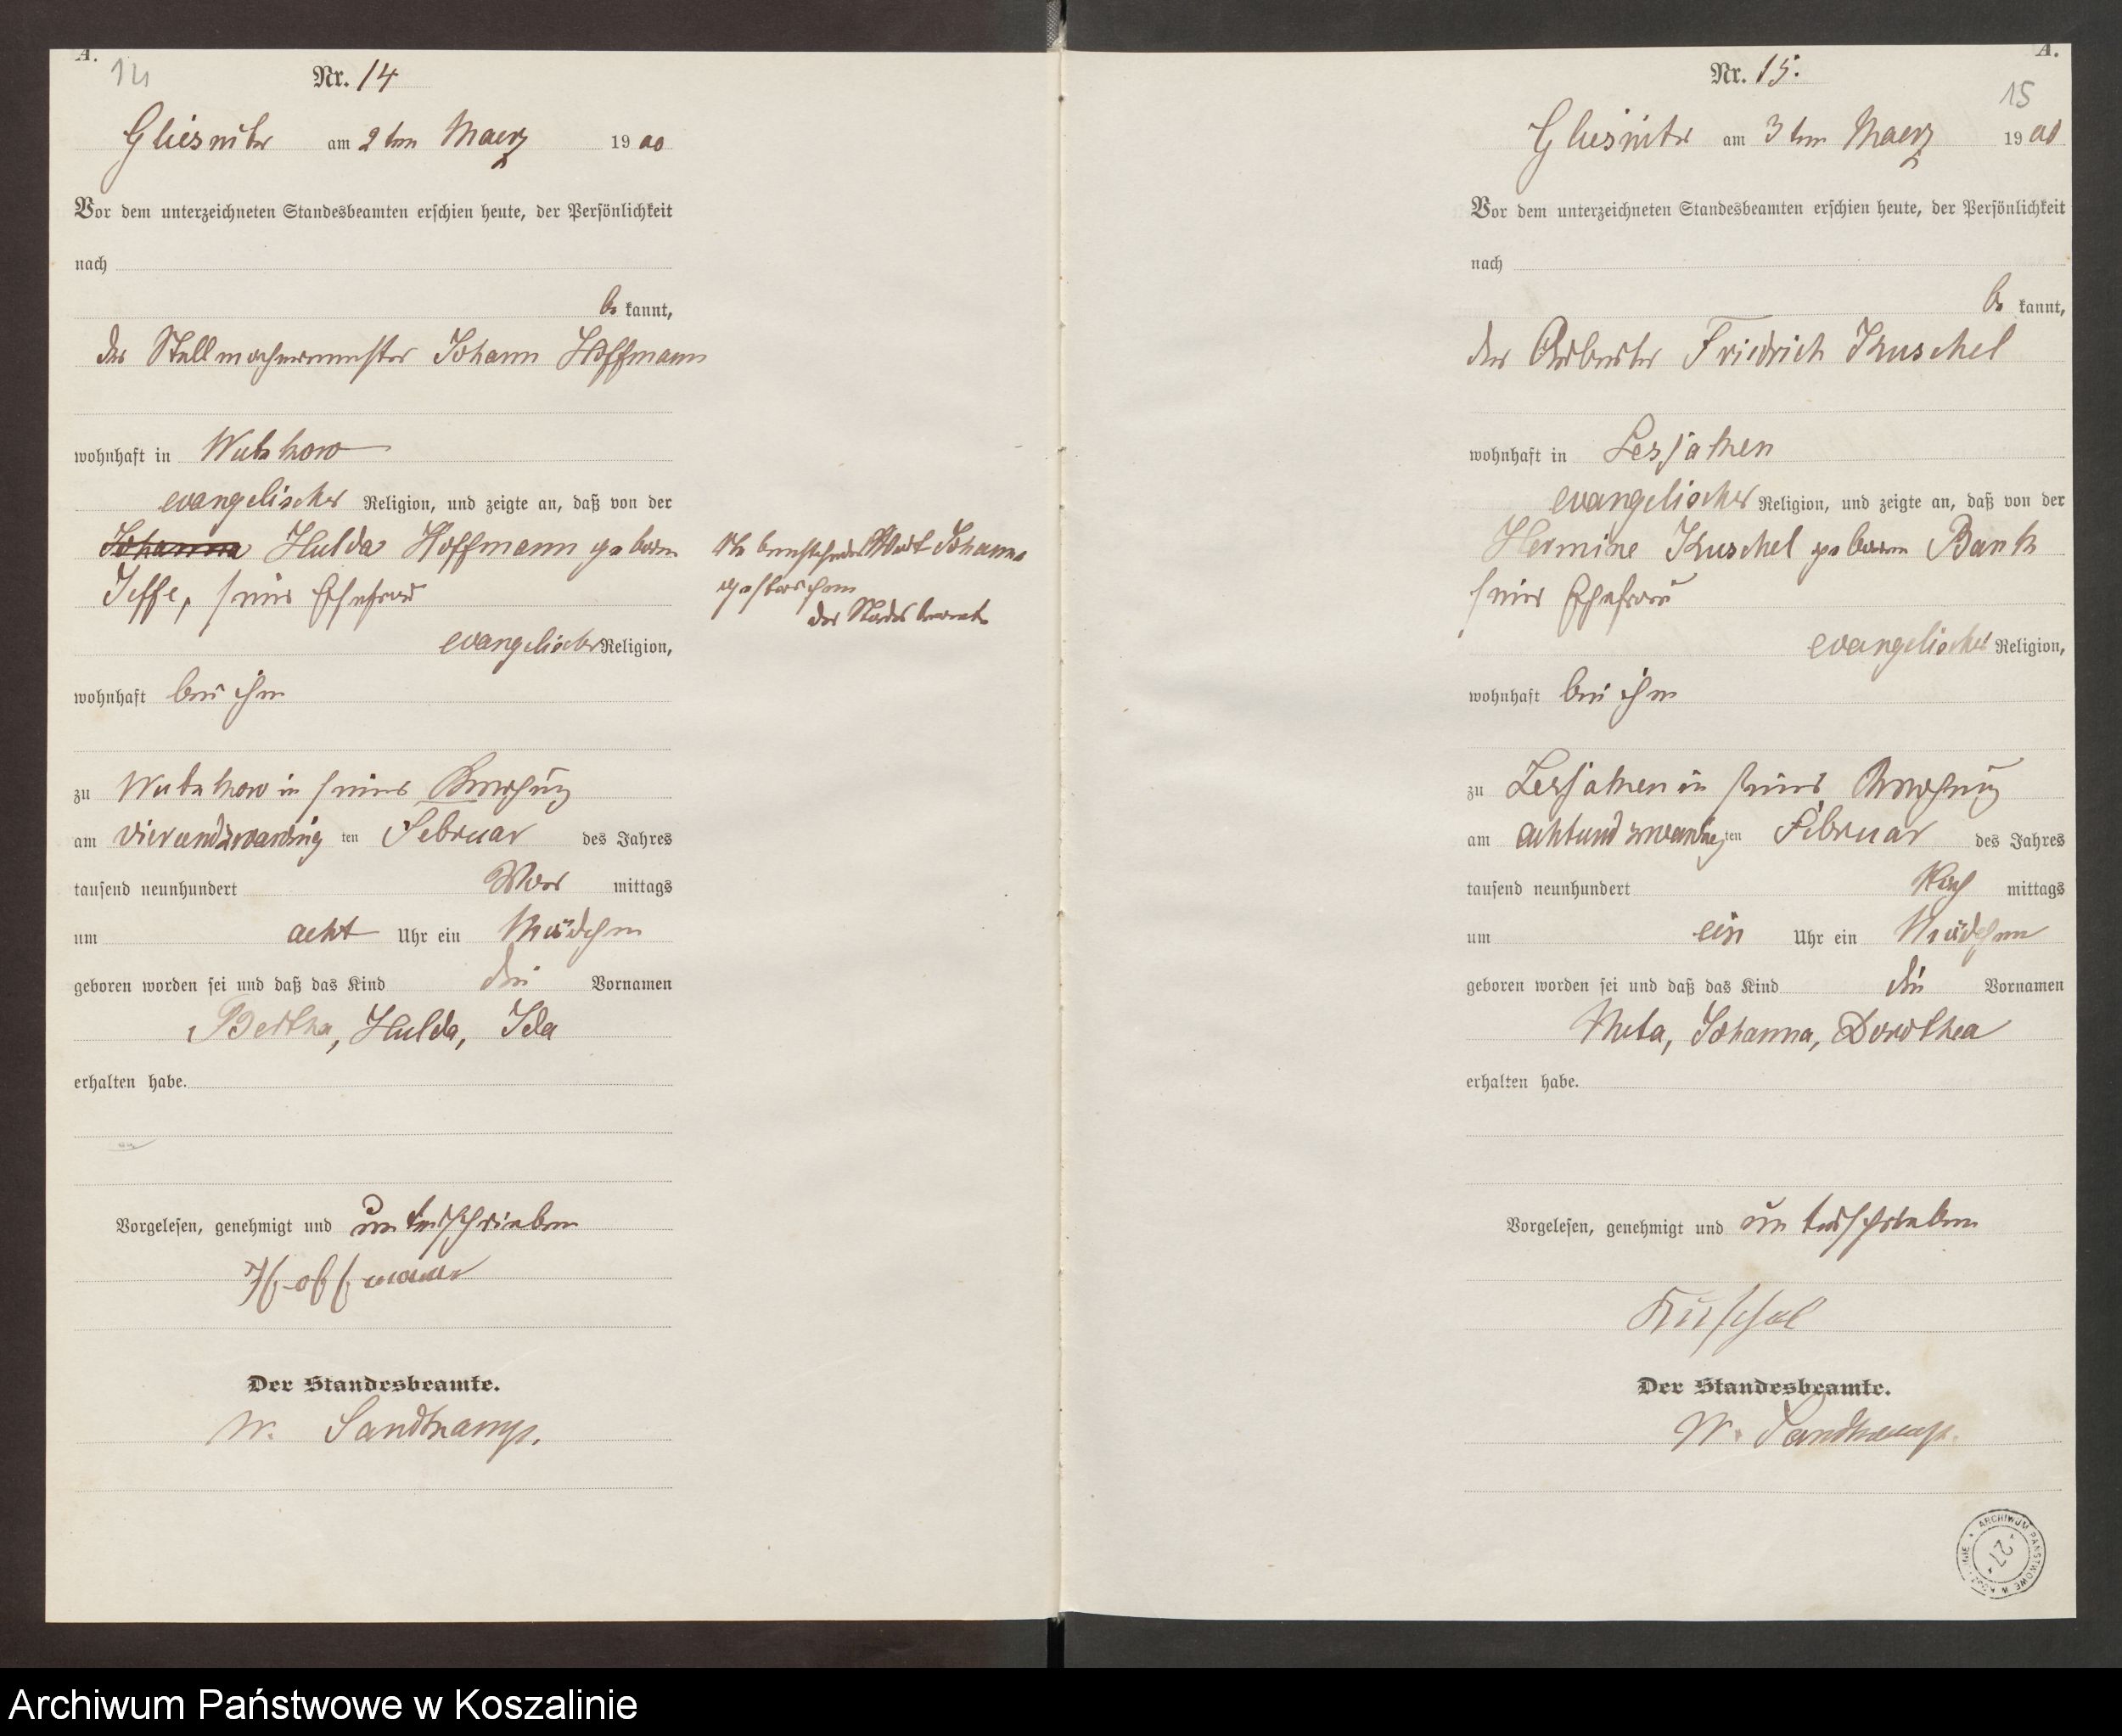 A.
14
Nr. 14
Gliesnitz am 2ten Maerz 1900
Vor dem unterzeichneten Standesbeamten erschien heute, der Persönlichkeit
nach
be kannt,
der Stellmachermeister Johann Hoffmann
wohnhaft in Wutzkow
evangelischer Religion, und zeigte an, daß von der
Johanna Hulda Hoffmann geboren
Jeffe, seiner Ehefrau
evangelischer Religion,
wohnhaft bei ihm
zu Wutzkow in seiner Behausung
am vierundzwanzig ten Februar des Jahres
tausend neunhundert Vor mittags
um acht Uhr ein Mädchen
geboren worden sei und daß das Kind die Vornamen
Bertha, Hulda, Ida
erhalten habe.
Vorgelesen, genehmigt und unterschrieben
Hoffmann
Der Standesbeamte.
W. Sandkamp.
Wort Johanna
gestrichen
der Standesbeamte
A.
Nr. 15.
15
Gliesnitz am 3ten Maerz 1900
Vor dem unterzeichneten Standesbeamten erschien heute, der Persönlichkeit
nach
be kannt,
der Arbeiter Friedrich Kuschel
wohnhaft in Lesjaken
evangelischer Religion, und zeigte an, daß von der
Hermine Kuschel geboren Bank
seiner Ehefrau
evangelischer Religion,
wohnhaft bei ihm
zu Lesjaken in seiner Behausung
am achtundzwanzig ten Februar des Jahres
tausend neunhundert Nach mittags
um ein Uhr ein Mädchen
geboren worden sei und daß das Kind die Vornamen
Meta, Johanna, Dorothea
erhalten habe.
Vorgelesen, genehmigt und unterschrieben
Kuschel
Der Standesbeamte.
W. Sandkamp.
ARCHIWUM PAŃSTWOWE W
27
Archiwum Państwowe w Koszalinie